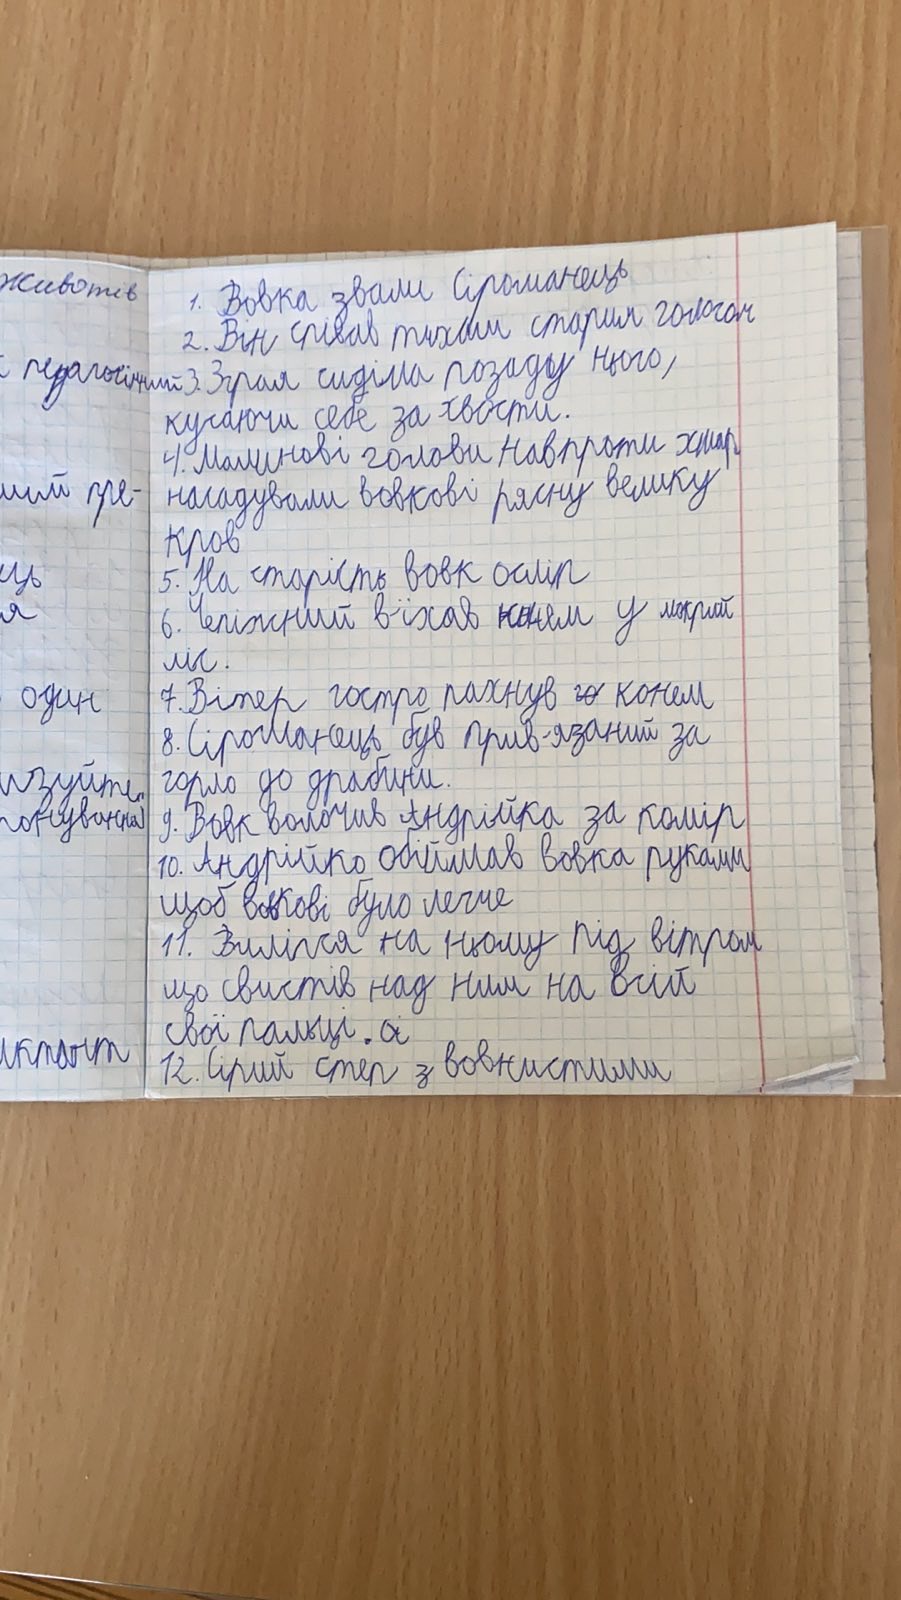 животів
педагогічний
ший пре-
ць
я
один
изуйте
ктант
1. Вовка звали Сіроманець
2. Він співав тихим старим голосом
3. Зграя сиділа позаду нього,
кусаючи себе за хвости.
4. Малинові голови навпроти хмар
нагадували вовкові рясну велику
кров
5. На старість вовк осліп
6. Чепіжний в'їхав конем у мокрий
ліс.
7. Вітер гостро пахнув конем
8. Сіроманець був прив'язаний за
горло до драбини.
9. Вовк волочив Андрійка за комір
10. Андрійко обіймав вовка руками
щоб вовкові було легче
11. на ньому під вітром
що свистів над ним на всій
свої пальці.
12. Сірий степ з вовнистими